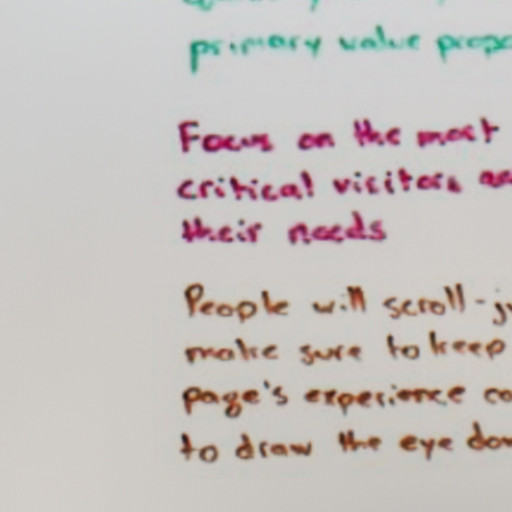 primary value
Focus on the most
critical visitors
their needs
People will scroll -
make sure to keep
page's experience
to draw the eye